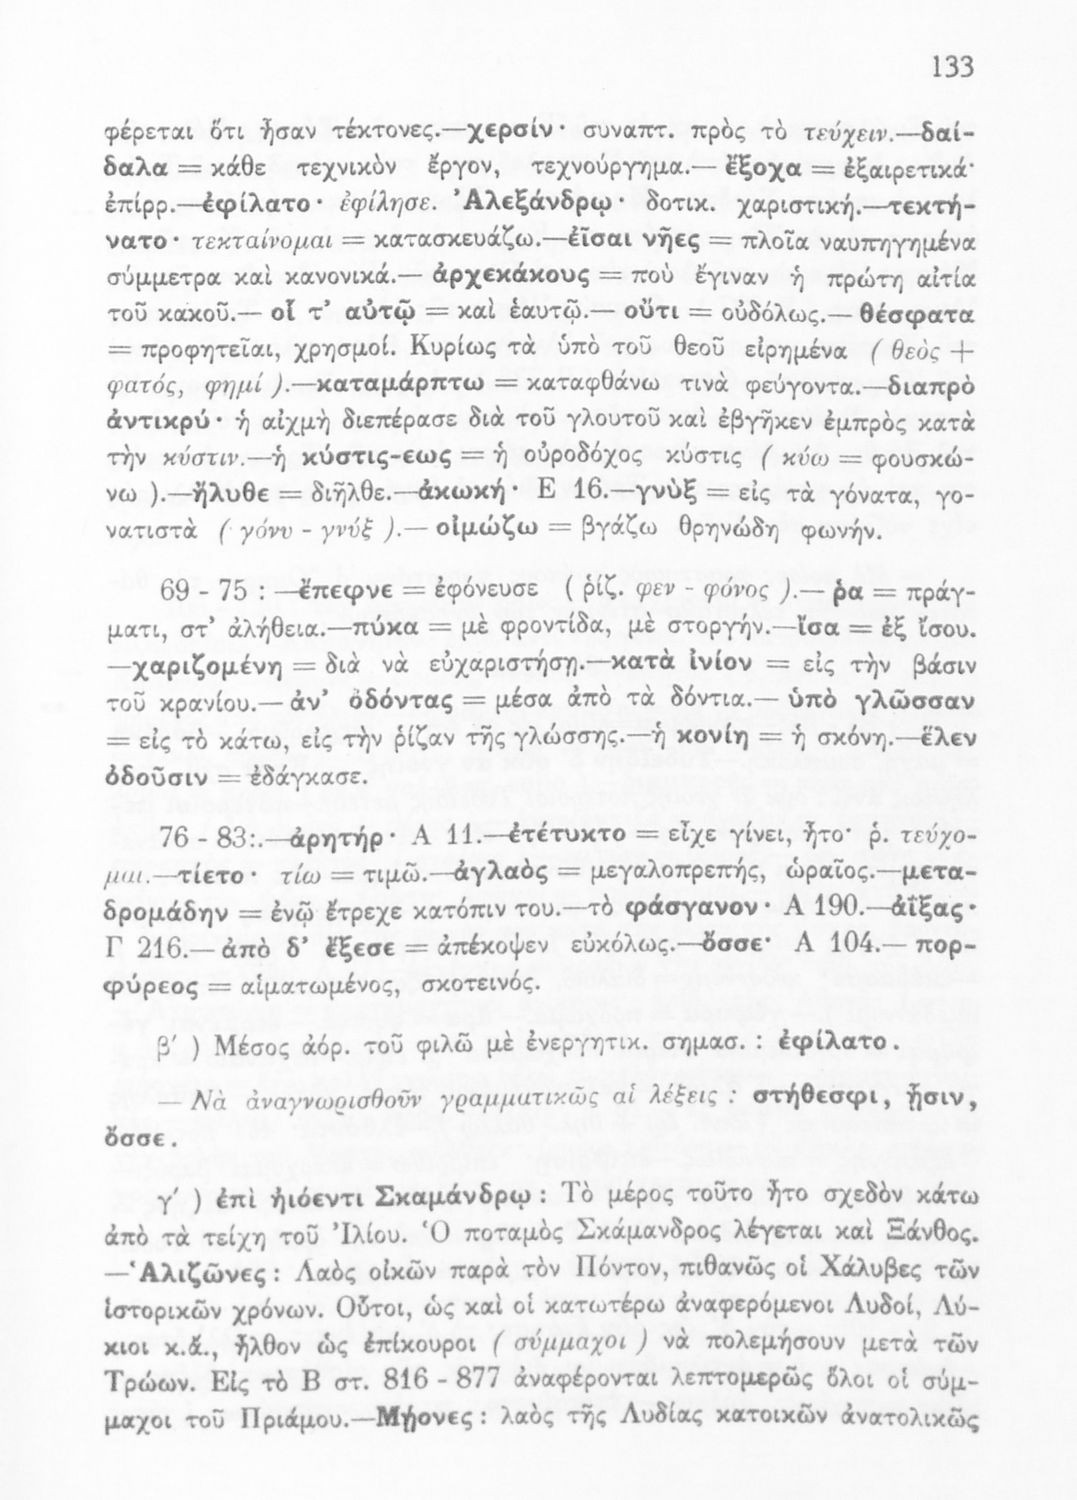 133
φέρεται ὅτι ἦσαν τέκτονες.—χερσίν· συναπτ. πρὸς τὸ τεύχειν.—δαί-
δαλα = κάθε τεχνικὸν ἔργον, τεχνούργημα.— ἔξοχα = ἐξαιρετικά·
ἐπίρρ.—ἐφίλατο· ἐφίλησε. Ἀλεξάνδρῳ· δοτικ. χαριστική.—τεκτή-
νατο· τεκταίνομαι = κατασκευάζω.—ἐῖσαι νῆες = πλοῖα ναυπηγημένα
σύμμετρα καὶ κανονικά.— ἀρχεκάκους = ποὺ ἔγιναν ἡ πρώτη αἰτία
τοῦ κακοῦ.— οἷ τ' αὐτῷ = καὶ ἑαυτῷ.— οὔτι = οὐδόλως.— θέσφατα
= προφητεῖαι, χρησμοί. Κυρίως τὰ ὑπὸ τοῦ θεοῦ εἰρημένα ( θεὸς +
φατός, φημί ).—καταμάρπτω = καταφθάνω τινὰ φεύγοντα.—διαπρὸ
ἀντικρύ· ἡ αἰχμὴ διεπέρασε διὰ τοῦ γλουτοῦ καὶ ἐβγῆκεν ἐμπρὸς κατὰ
τὴν κύστιν.—ἡ κύστις-εως = ἡ οὐροδόχος κύστις ( κύω = φουσκώ-
νω ).—ἤλυθε = διῆλθε.—ἀκωκή· Ε 16.—γνὺξ = εἰς τὰ γόνατα, γο-
νατιστὰ ( γόνυ - γνύξ ).— οἰμώζω = βγάζω θρηνώδη φωνήν.
69 - 75 : —ἔπεφνε = ἐφόνευσε ( ῥίζ. φεν - φόνος ).— ῥα = πράγ-
ματι, στ' ἀλήθεια.—πύκα = μὲ φροντίδα, μὲ στοργήν.—ἶσα = ἐξ ἴσου.
—χαριζομένη = διὰ νὰ εὐχαριστήσῃ.—κατὰ ἰνίον = εἰς τὴν βάσιν
τοῦ κρανίου.— ἀν' ὀδόντας = μέσα ἀπὸ τὰ δόντια.— ὑπὸ γλῶσσαν
= εἰς τὸ κάτω, εἰς τὴν ῥίζαν τῆς γλώσσης.—ἡ κονίη = ἡ σκόνη.—ἕλεν
ὀδοῦσιν = ἐδάγκασε.
76 - 83:.—ἀρητήρ· Α 11.—ἐτέτυκτο = εἶχε γίνει, ἦτο· ῥ. τεύχο-
μαι.—τίετο· τίω = τιμῶ.—ἀγλαὸς = μεγαλοπρεπής, ὡραῖος.—μετα-
δρομάδην = ἐνῷ ἔτρεχε κατόπιν του.—τὸ φάσγανον· Α 190.—ἀΐξας·
Γ 216.— ἀπὸ δ' ἔξεσε = ἀπέκοψεν εὐκόλως.—ὄσσε· Α 104.— πορ-
φύρεος = αἱματωμένος, σκοτεινός.
β′ ) Μέσος ἀόρ. τοῦ φιλῶ μὲ ἐνεργητικ. σημασ. : ἐφίλατο.
— Νὰ ἀναγνωρισθοῦν γραμματικῶς αἱ λέξεις : στήθεσφι, ᾗσιν,
ὄσσε.
γ′ ) ἐπὶ ἠιόεντι Σκαμάνδρῳ : Τὸ μέρος τοῦτο ἦτο σχεδὸν κάτω
ἀπὸ τὰ τείχη τοῦ Ἰλίου. Ὁ ποταμὸς Σκάμανδρος λέγεται καὶ Ξάνθος.
—Ἁλιζῶνες : Λαὸς οἰκῶν παρὰ τὸν Πόντον, πιθανῶς οἱ Χάλυβες τῶν
ἱστορικῶν χρόνων. Οὗτοι, ὡς καὶ οἱ κατωτέρω ἀναφερόμενοι Λυδοί, Λύ-
κιοι κ.ἄ., ἦλθον ὡς ἐπίκουροι ( σύμμαχοι ) νὰ πολεμήσουν μετὰ τῶν
Τρώων. Εἰς τὸ Β στ. 816 - 877 ἀναφέρονται λεπτομερῶς ὅλοι οἱ σύμ-
μαχοι τοῦ Πριάμου.—Μῄονες : λαὸς τῆς Λυδίας κατοικῶν ἀνατολικῶς